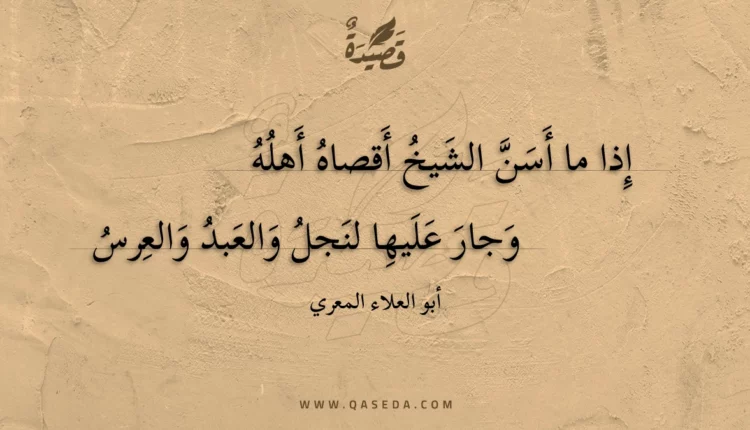 قَصِيْدَةٌ
إِذا ما أَسَنَّ الشَيخُ أَقصاهُ أَهلُهُ
وَجارَ عَلَيهِا لنَجلُ وَالعَبدُ وَالعِرسُ
أبو العلاء المعري
WWW.QASEDA.COM